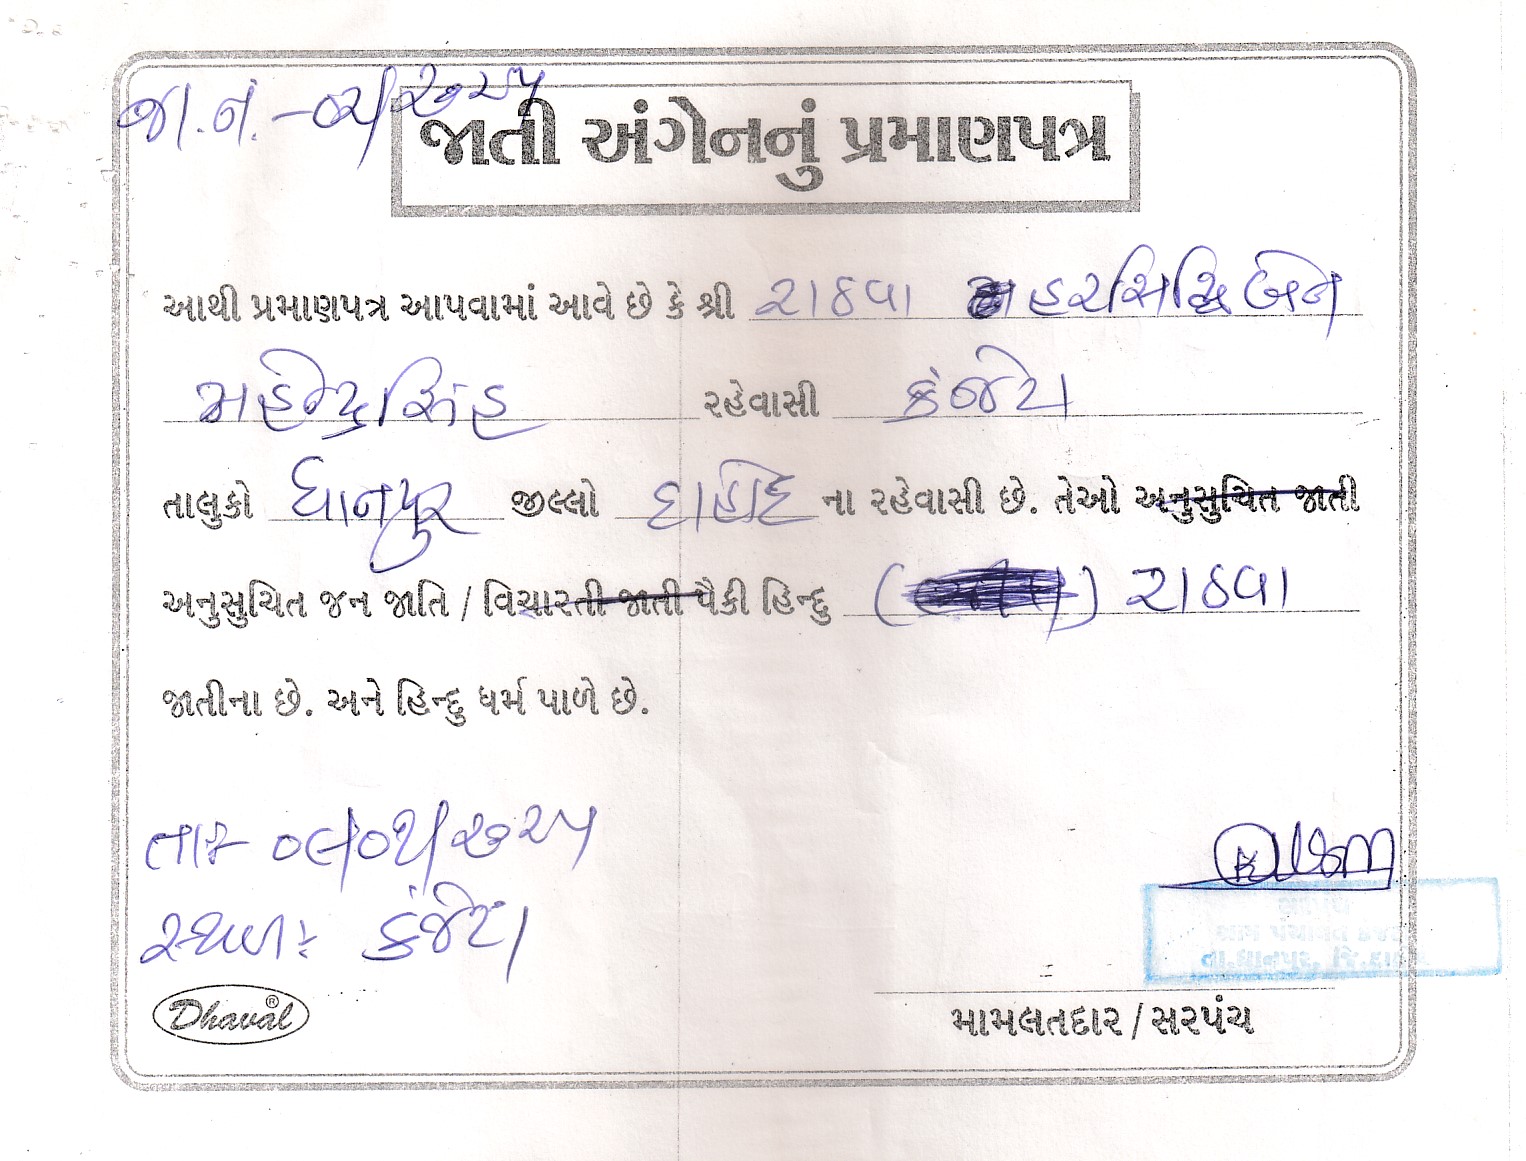 જા.નં.-૦૨/૨૦૨૫
જાતી અંગેનનું પ્રમાણપત્ર
આથી પ્રમાણપત્ર આપવામાં આવે છે કે શ્રી રાઠવા હરસિધ્ધિબેન
મહેન્દ્રસિંહ રહેવાસી કંજેટા
તાલુકો ધાનપુર જીલ્લો દાહોદ ના રહેવાસી છે. તેઓ અનુસુચિત જાતી
અનુસુચિત જન જાતિ / વિચારતી જાતી પૈકી હિન્દુ ( ) રાઠવા
જાતીના છે. અને હિન્દુ ધર્મ પાળે છે.
તા:- ૦૯/૦૧/૨૦૨૫
સ્થળ:- કંજેટા
Dhaval ®
મામલતદાર / સરપંચ